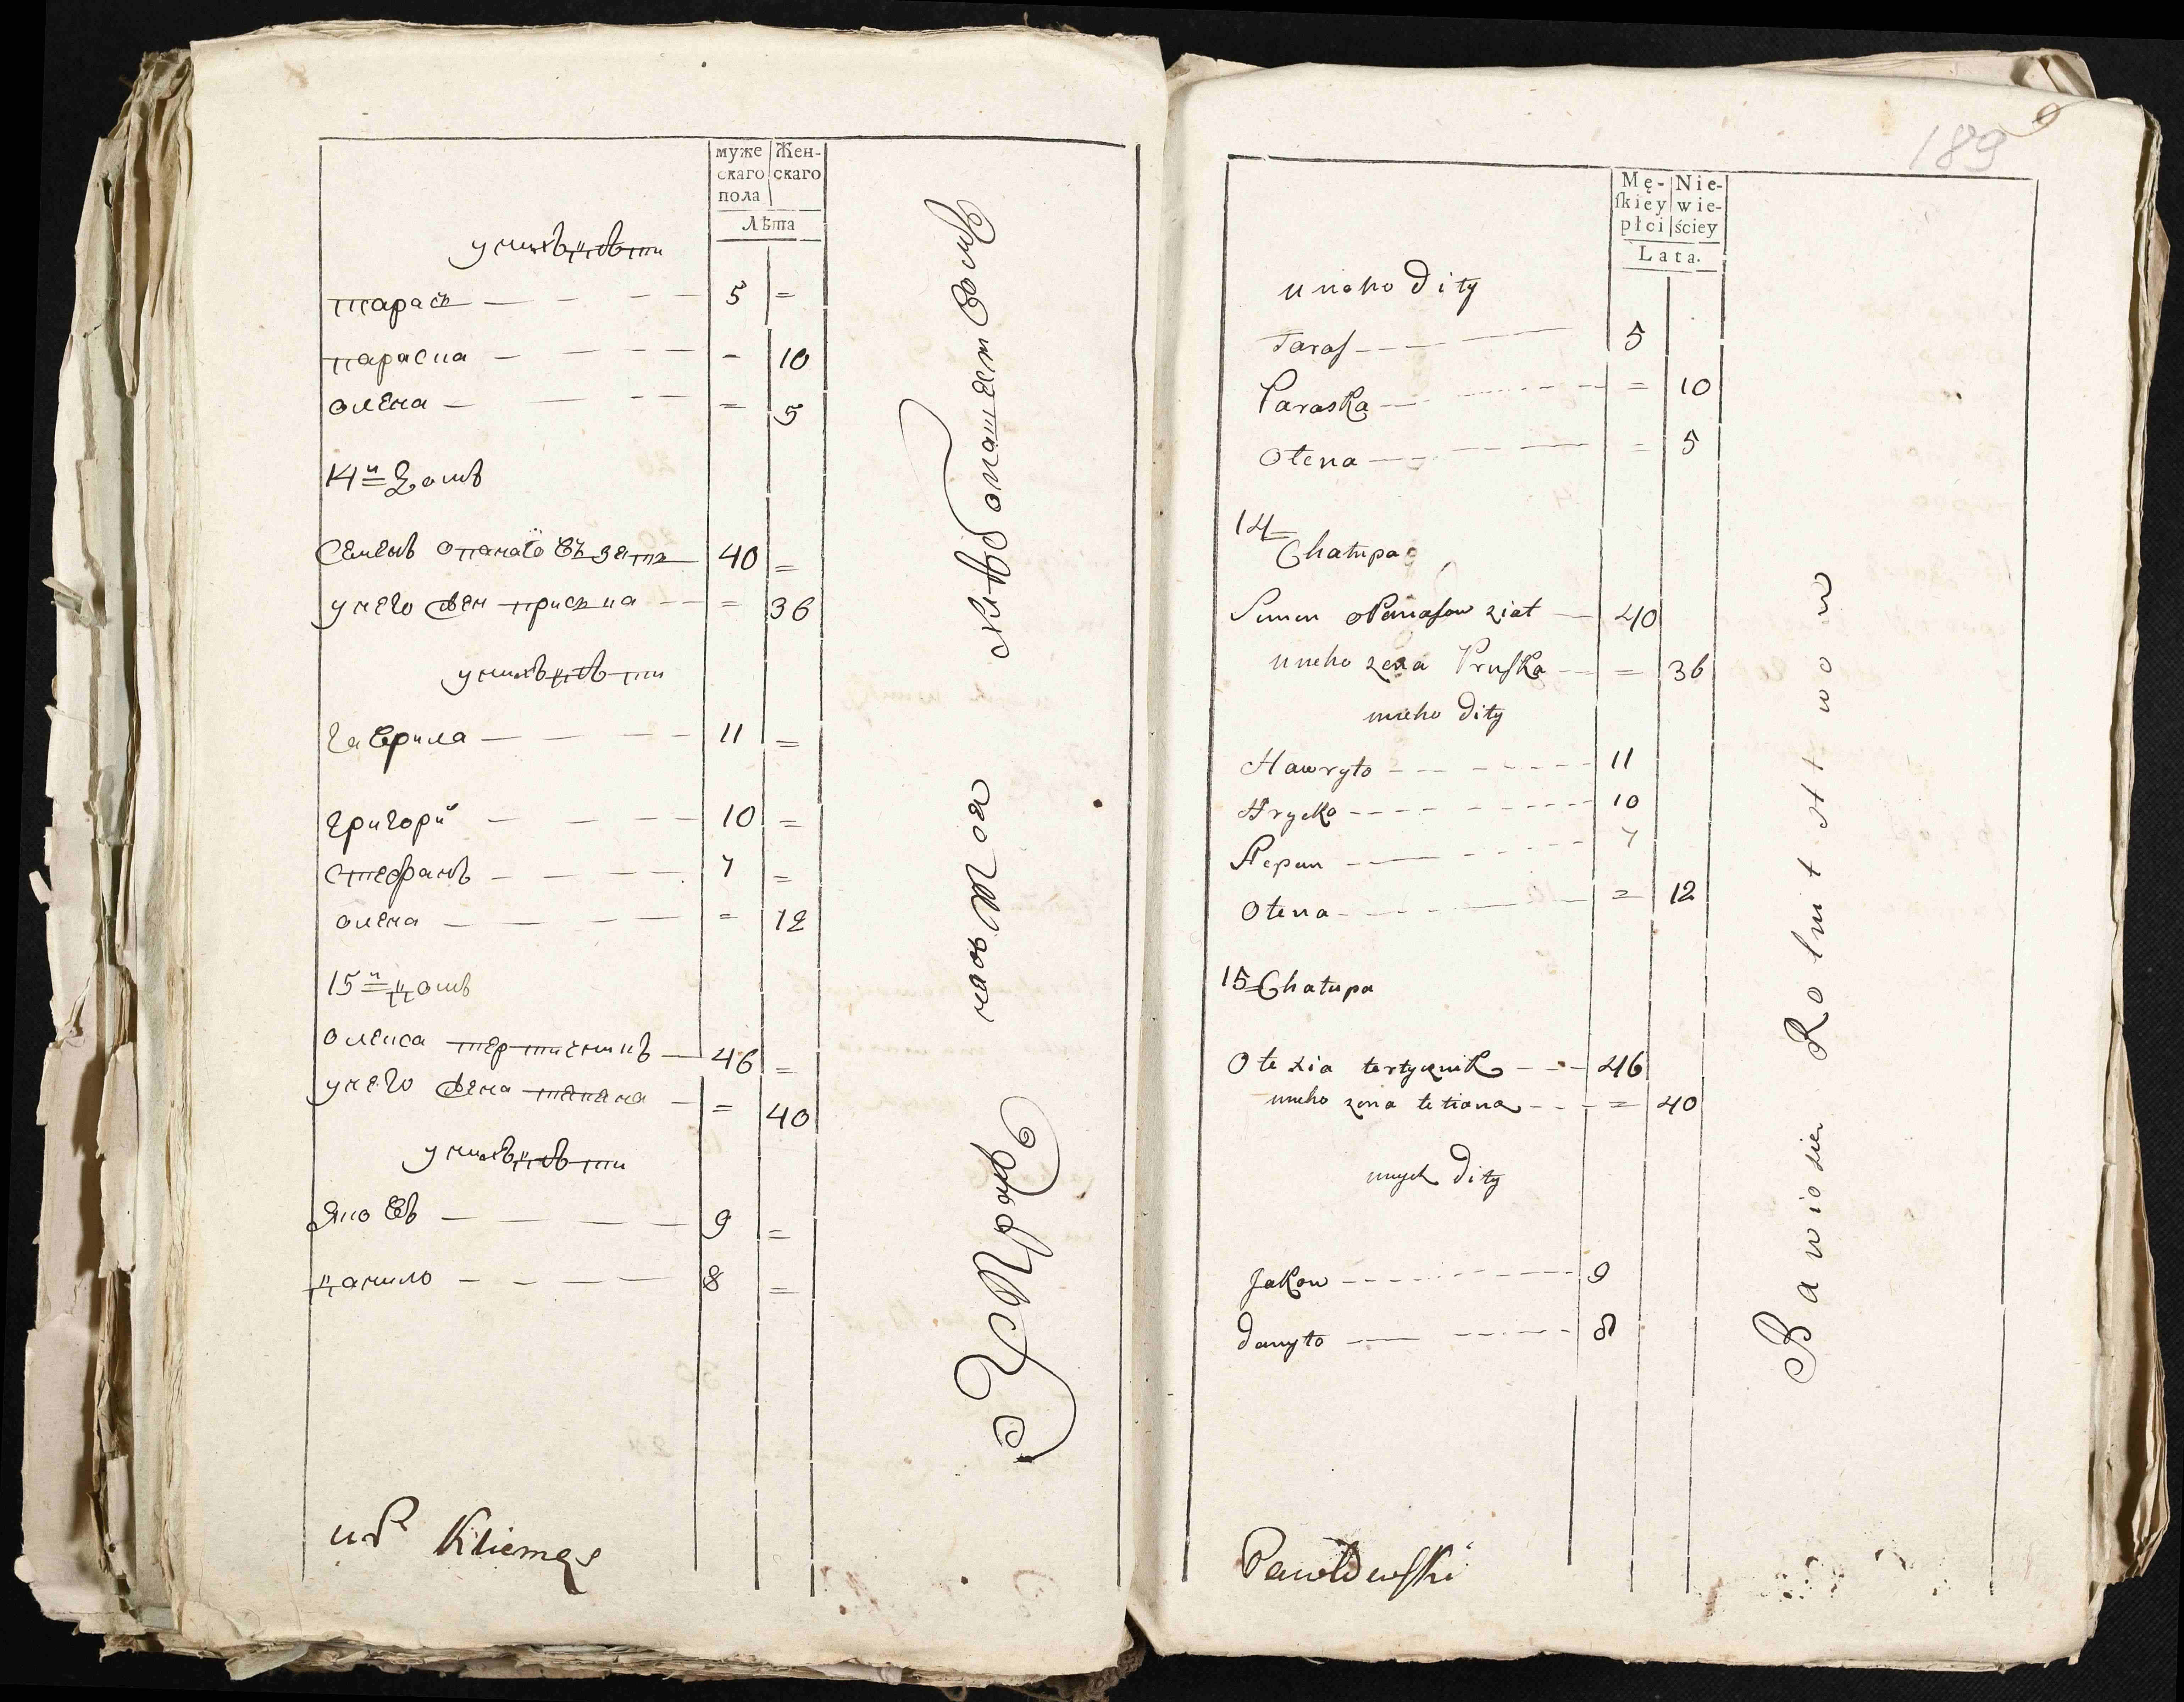 муже
скаго
пола
Жен-
скаго
Лѣта
у нихъ дѣти
тарасъ — — — — 5 =
параска — — — — - 10
олена — — — — = 5
14й домъ
Семенъ опанасовъ зять — 40 =
у него жен приська — — = 36
у нихъ дѣти
гаврила — — — — 11 =
григорий — — — — 10 =
стефанъ — — — — 7 =
олена — — — — = 12
15й домъ
олекса тертишникъ — 46 =
у него жена татиана — = 40
у нихъ дѣти
яковъ — — — — 9 =
данило — — — — 8 =
хлѣбопашеством
189
Mę-
ſkiey
płci
Nie-
wie-
ściey
Lata.
u neho Dity
Taraſ — — — 5
Paraska — — — = 10
Olena — — — = 5
14 Chałupa
Semen oPanaſow ziat — 40
u neho zena Pruſka — = 36
u neho Dity
Hawryło — — — 11
Hrycko — — — 10
Stepan — — — 7
Olena — — — = 12
15 Chałupa
Olexia tertycznik — — 46
u neho zona tetiana — — = 40
u nych Dity
Jakow — — — 9
Danyło — — — 8
Bawiosie Rolnitstwow